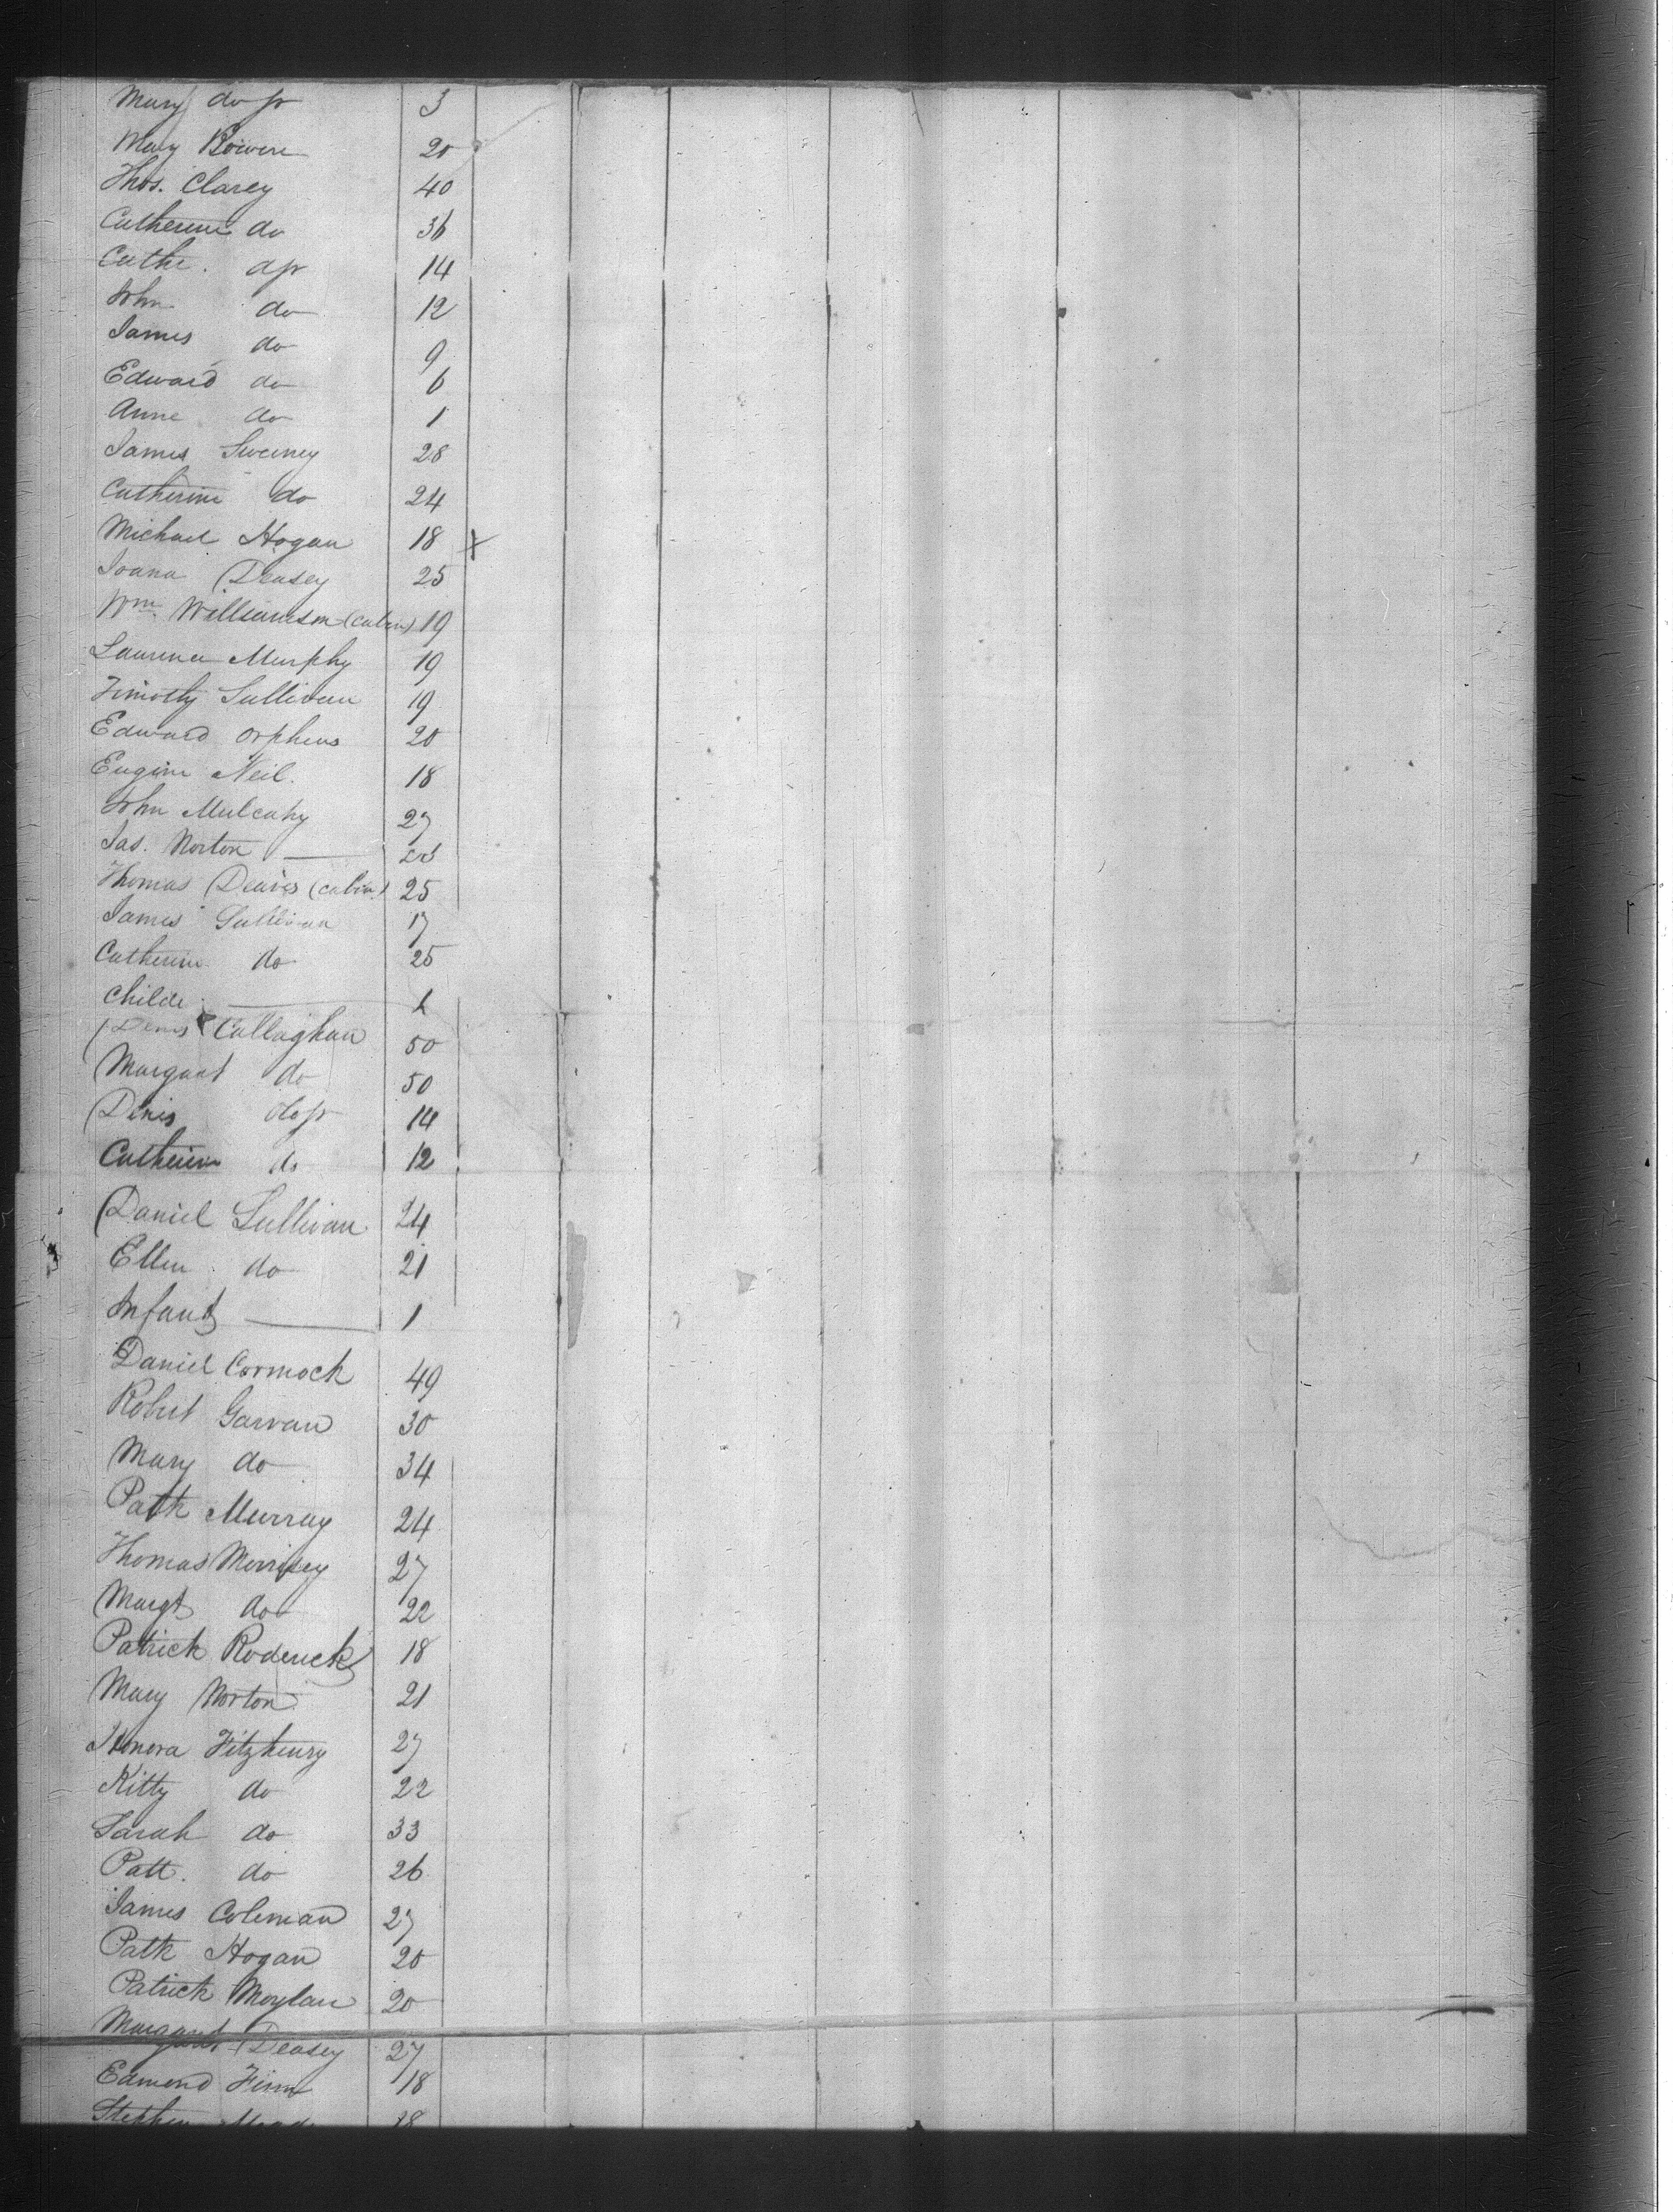 Mary do jr 3
Mary Bowen 20
Thos. Clarey 40
Catherine do 36
Cathe. do jr 14
John do 12
James do 9
Edward do 6
Anne do 1
James Sweeney 28
Catherine do 24
Michael Hogan 18 X
Joana Deasey 25
Wm. Williamson (cabin) 19
Laurence Murphy 19
Timothy Sullivan 19
Edward Orpheus 20
Eugine Neil. 18
John Mulcahy 27
Jas. Norton —
Thomas Deaves (cabin) 25
James Sullivan 17
Catherine do 25
Childe — 1
Denis Callaghan 50
Margaret do 50
Denis do jr 14
Catherine do 12
Daniel Sullivan 24
Ellen do 21
Infant — 1
Daniel Cormock 49
Robert Garvan 30
Mary do 34
Patk Murray 24
Thomas Morrisey 27
Margt do 22
Patrick Roderick 18
Mary Norton 21
Honora Fitzhenry 27
Kitty do 22
Sarah do 33
Patt. do 26
James Coleman 27
Patk Hogan 20
Patrick Moylan 20
Margaret Deasey 27
Edmond Finn 18
Stephen 18